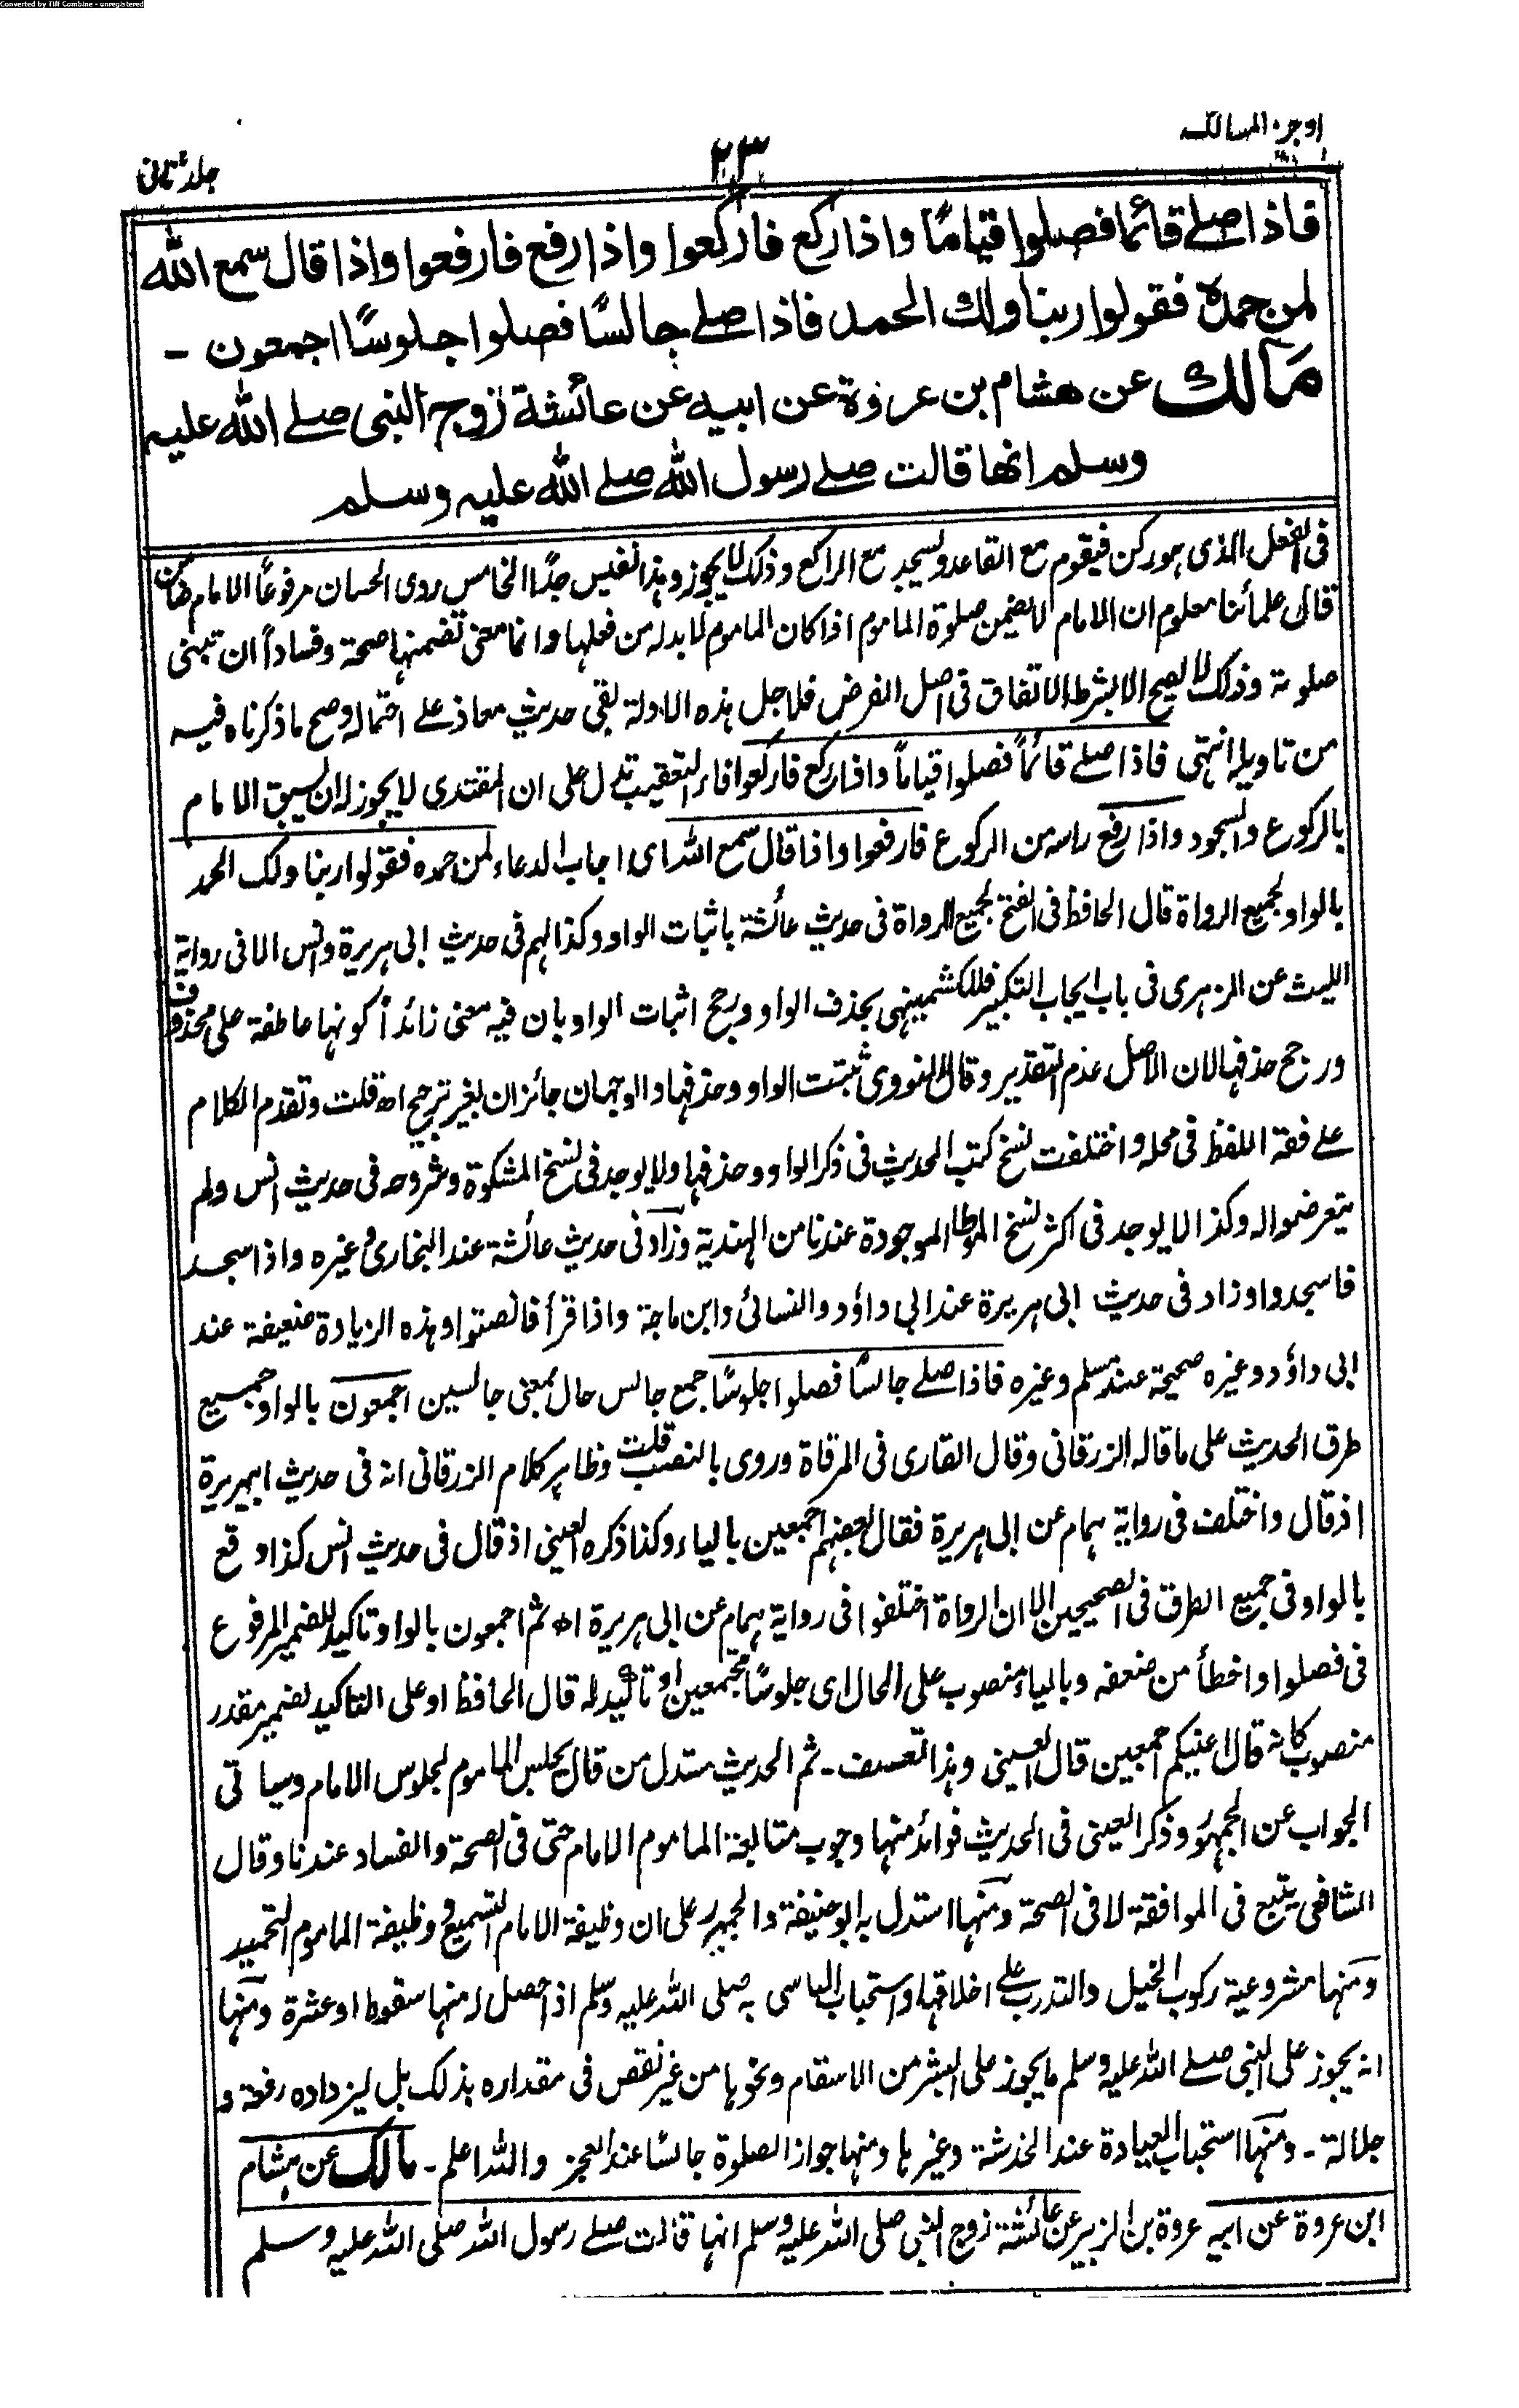 Converted by Tiff Combine - unregistered
اوجز المسالك
٢٣
جلد ثانی
فاذا صلے قائما فصلوا قیامًا واذا رکع فارکعوا واذا رفع فارفعوا واذا قال سمع الله
لمن حمدہ فقولوا ربنا ولك الحمد فاذا صلے جالسًا فصلوا جلوسًا اجمعون -
مَالك عن هشام بن عروة عن ابیه عن عائشة زوج النبی صلے الله علیه
وسلم انها قالت صلے رسول الله صلے الله علیه وسلم
فی الفعل الذی ہو رکن فیقوم مع القاعد ویسجد مع الراکع وذلک لا یجوز وہذا نفیس جدًا الخامس روی الحسان مرفوعًا الامام ضامن
قال علمائنا معلوم ان الامام لا یضمن صلوة الماموم اذا کان الماموم لا بد لہ من فعلہا وانما معنی تضمنہا صحة وفساداً ان تبنی
صلوتہ وذلک لا یصح الا بشرط الاتفاق فی اصل الفرض فلاجل ہذہ الادلة بقی حدیث معاذ علے احتمالہ وصح ما ذکرناہ فیہ
من تاویلہ انتہی فاذا صلے قائماً فصلوا قیاماً واذا رکع فارکعوا فاء التعقیب تدل علی ان المقتدی لا یجوز لہ ان یسبق الامام
بالرکوع والسجود واذا رفع راسہ من الرکوع فارفعوا واذا قال سمع اللہ ای اجاب الدعاء لمن حمدہ فقولوا ربنا ولک الحمد
بالواو لجمیع الرواة قال الحافظ فی الفتح لجمیع الرواة فی حدیث عائشة باثبات الواو وکذا لہم فی حدیث ابی ہریرة وانس الا فی روایة
اللیث عن الزہری فی باب ایجاب التکبیر فللکشمیہنی بحذف الواو ورجح اثبات الواو بان فیہ معنی زائداً کونہا عاطفة علی محذوف
ورجح حذفہا لان الاصل عدم التقدیر وقال النووی ثبتت الواو وحذفہا والوجہان جائزان بغیر ترجیح اھ قلت وتقدم الکلام
علے فقہ اللفظ فی محلہ واختلفت نسخ کتب الحدیث فی ذکر الواو وحذفہا ولا یوجد فی نسخ المشکوة وشروحہ فی حدیث انس ولم
یتعرضوا لہ وکذا لا یوجد فی اکثر نسخ الموطا الموجودة عندنا من الہندیة وزاد فی حدیث عائشة عند البخاری وغیرہ واذا سجد
فاسجدوا وزاد فی حدیث ابی ہریرة عند ابی داؤد والنسائی وابن ماجة واذا قرأ فانصتوا وہذہ الزیادة ضعیفة عند
ابی داؤد وغیرہ صحیحة عند مسلم وغیرہ فاذا صلے جالسًا فصلوا جلوسًا جمع جالس حال بمعنی جالسین اجمعون بالواو جمیع
طرق الحدیث علی ما قالہ الزرقانی وقال القاری فی المرقاة وروی بالنصب قلت وظاہر کلام الزرقانی انہ فی حدیث ابیہریرة
اذ قال واختلف فی روایة ہمام عن ابی ہریرة فقال بعضہم اجمعین بالیاء وکذا ذکرہ العینی اذ قال فی حدیث انس کذا وقع
بالواو فی جمیع الطرق فی الصحیحین الا ان الرواة اختلفوا فی روایة ہمام عن ابی ہریرة اھ ثم اجمعون بالواو تاکید للضمیر المرفوع
فی فصلوا واخطأ من ضعفہ وبالیاء منصوب علی الحال ای جلوسًا مجتمعین او تاکید لہ قال الحافظ او علی التاکید لضمیر مقدر
منصوب کانہ قال اعنیکم اجمعین قال العینی وہذا تعسف - ثم الحدیث مستدل من قال یجلس الماموم لجلوس الامام وسیاتی
الجواب عن الجمہور وذکر العینی فی الحدیث فوائد منہا وجوب متابعة الماموم الامام حتی فی الصحة والفساد عندنا وقال
الشافعی یتبع فی الموافقة لا فی الصحة ومنہا استدل بہ ابو حنیفة والجمہور علی ان وظیفة الامام التسمیع ووظیفة الماموم التحمید
ومنہا مشروعیة رکوب الخیل والتدرب علے اخلاقہا واستحباب التاسی بہ صلی اللہ علیہ وسلم اذا حصل لہ منہا سقوط او عثرة ومنہا
انہ یجوز علی النبی صلے اللہ علیہ وسلم ما یجوز علی البشر من الاسقام ونحوہا من غیر نقص فی مقدارہ بذلک بل لیزدادہ رفعة و
جلالة - ومنہا استحباب العیادة عند الخدشة وغیرہا ومنہا جواز الصلوة جالسًا عند العجز واللہ اعلم - مالک عن ہشام
ابن عروة عن ابیہ عروة بن الزبیر عن عائشة زوج النبی صلی اللہ علیہ وسلم انہا قالت صلے رسول اللہ صلی اللہ علیہ وسلم